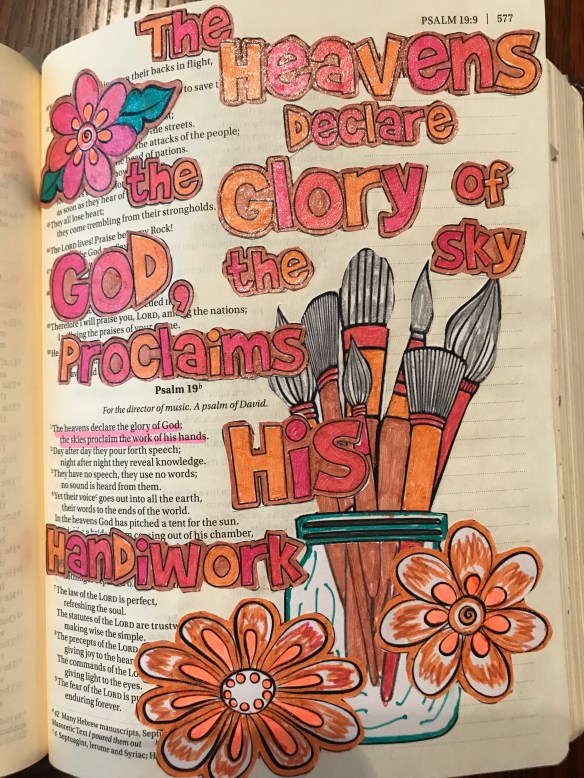 PSALM 19:9 | 577
The Heavens
Declare
the Glory of
GOD, the Sky
Proclaims
His
Handiwork
their backs in flight,
to save t
the streets.
the attacks of the people;
head of nations.
as soon as they hear of
They all lose heart;
they come trembling from their strongholds.
The LORD lives! Praise be my Rock!
Therefore I will praise you, LORD, among the nations;
the praises of your
Psalm 19
For the director of music. A psalm of David.
The heavens declare the glory of God;
the skies proclaim the work of his hands.
Day after day they pour forth speech;
night after night they reveal knowledge.
They have no speech, they use no words;
no sound is heard from them.
Yet their voice goes out into all the earth,
their words to the ends of the world.
In the heavens God has pitched a tent for the sun.
coming out of his chamber,
The law of the LORD is perfect,
refreshing the soul.
The statutes of the LORD are trustw
making wise the simple.
The precepts of the LORD
giving joy to the hear
The commands of the LO
giving light to the eyes.
The fear of the LORD is pu
enduring forever.
42 Many Hebrew manuscripts, Sept
Masoretic Text I poured them out
Septuagint, Jerome and Syriac; H